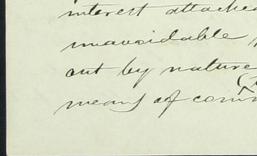 interest attache
unavoidable,
out by nature
means of com